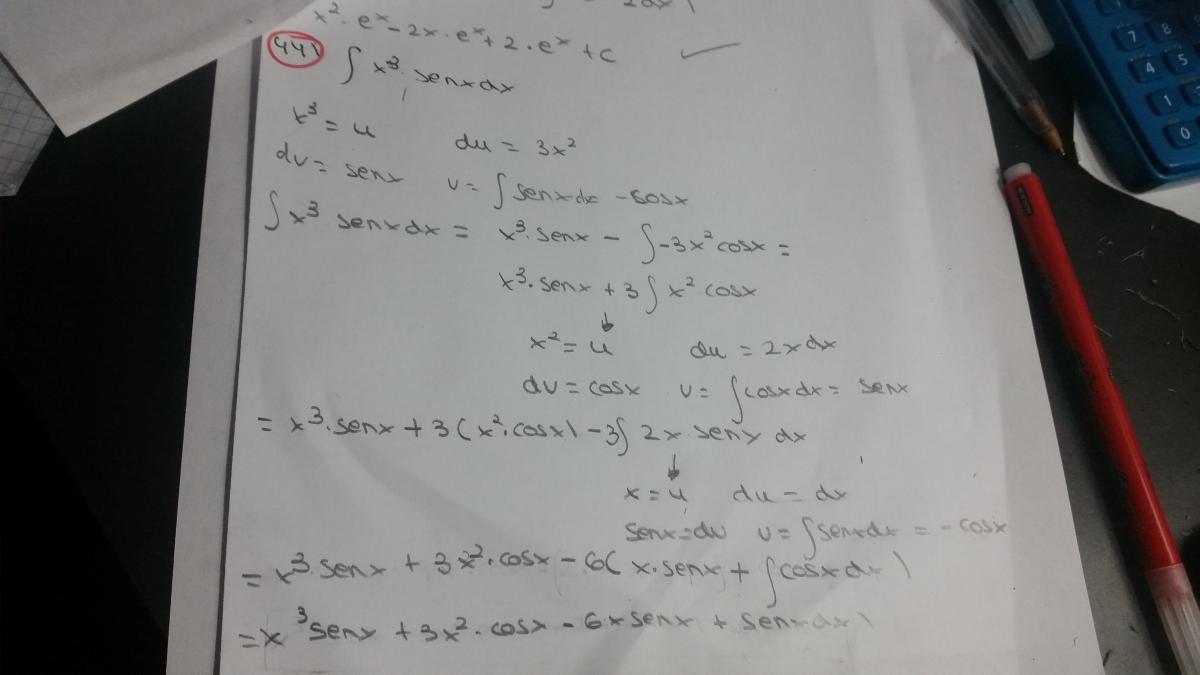 x²·eˣ-2x·eˣ+2·eˣ+c
∫ x³·senxdx
x³=u du=3x²
dv=senx v=∫senxdx -cosx
∫x³ senxdx = x³·senx - ∫-3x²cosx =
x³·senx + 3∫x²cosx
↓
x²=u du=2xdx
dv=cosx v=∫cosxdx=senx
= x³·senx+3(x²·cosx)-3∫2x·senx dx
↓
x=u du=dx
senx=dv v=∫senxdx=-cosx
= x³·senx + 3x²·cosx-6(x·senx+∫cosxdx)
= x³senx + 3x²·cosx-6xsenx + senxdx)
7 8
4 5
1
0